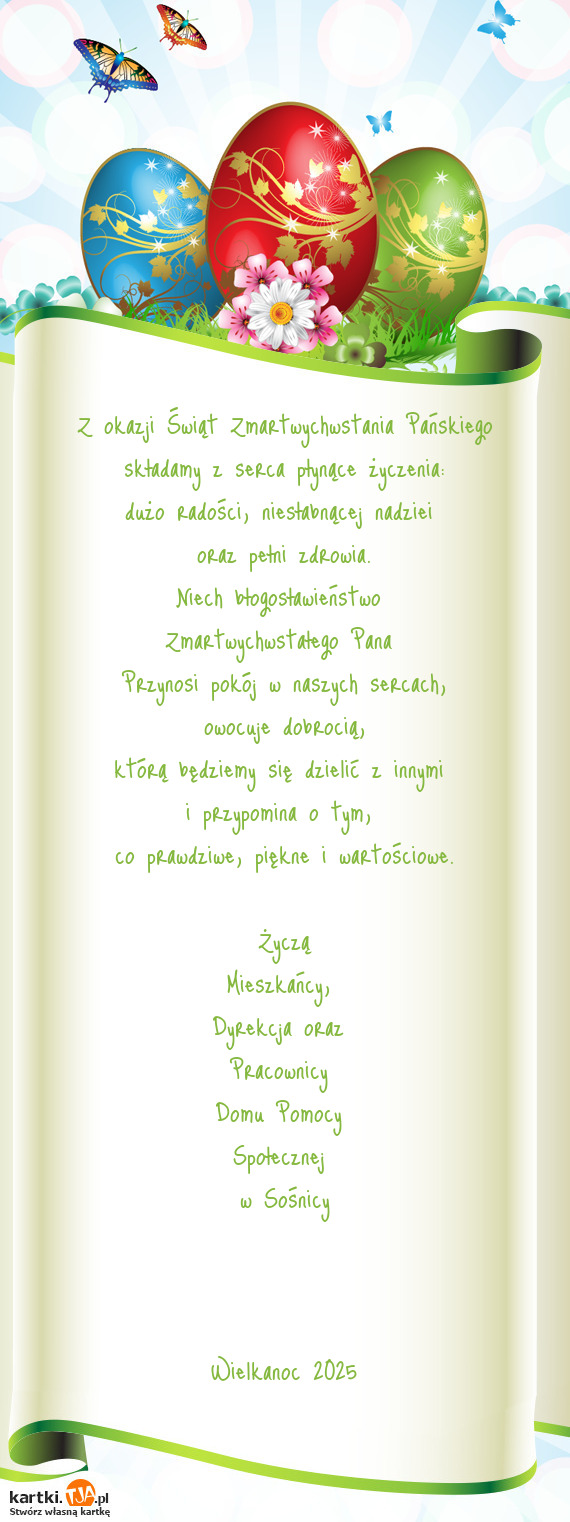 Z okazji Świąt Zmartwychwstania Pańskiego
składamy z serca płynące życzenia:
dużo radości, niesłabnącej nadziei
oraz pełni zdrowia.
Niech błogosławieństwo
Zmartwychwstałego Pana
Przynosi pokój w naszych sercach,
owocuje dobrocią,
którą będziemy się dzielić z innymi
i przypomina o tym,
co prawdziwe, piękne i wartościowe.
Życzą
Mieszkańcy,
Dyrekcja oraz
Pracownicy
Domu Pomocy
Społecznej
w Sośnicy
Wielkanoc 2025
kartki.TJA.pl
Stwórz własną kartkę